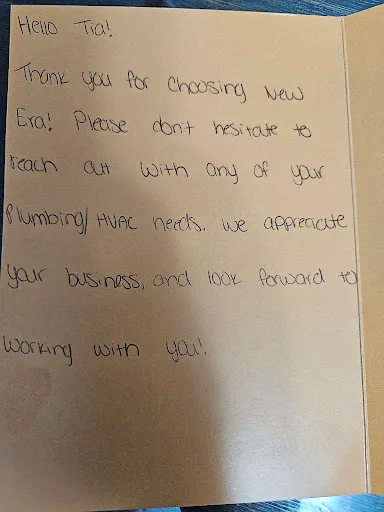 Hello Tia!
Thank you for choosing New
Era! Please don't hesitate to
reach out with any of your
Plumbing/HVAC needs. We appreciate
your business, and look forward to
working with you!